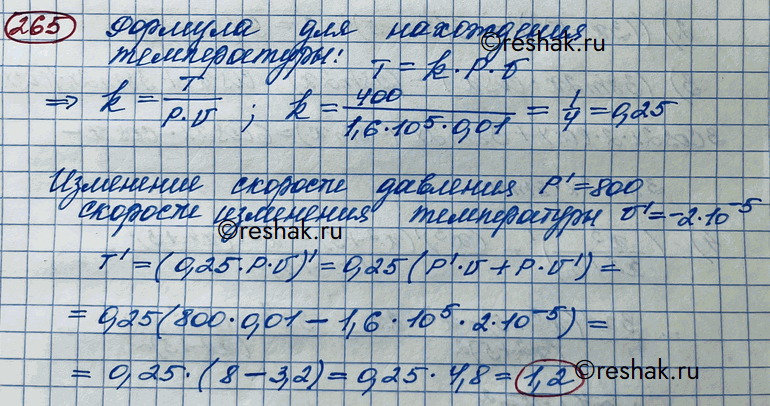 265 Формула для нахождения
температуры: T = k · P · v
⇒ k = T/(P·v) ; k = 400/(1,6·10⁵·0,01) = 1/4 = 0,25
©reshak.ru
Изменение скорости давления P' = 800
скорости изменения температуры v' = -2·10⁻⁵
©reshak.ru
T' = (0,25·P·v)' = 0,25 (P'·v + P·v') =
= 0,25(800·0,01 - 1,6·10⁵·2·10⁻⁵) =
= 0,25·(8 - 3,2) = 0,25·4,8 = 1,2
©reshak.ru